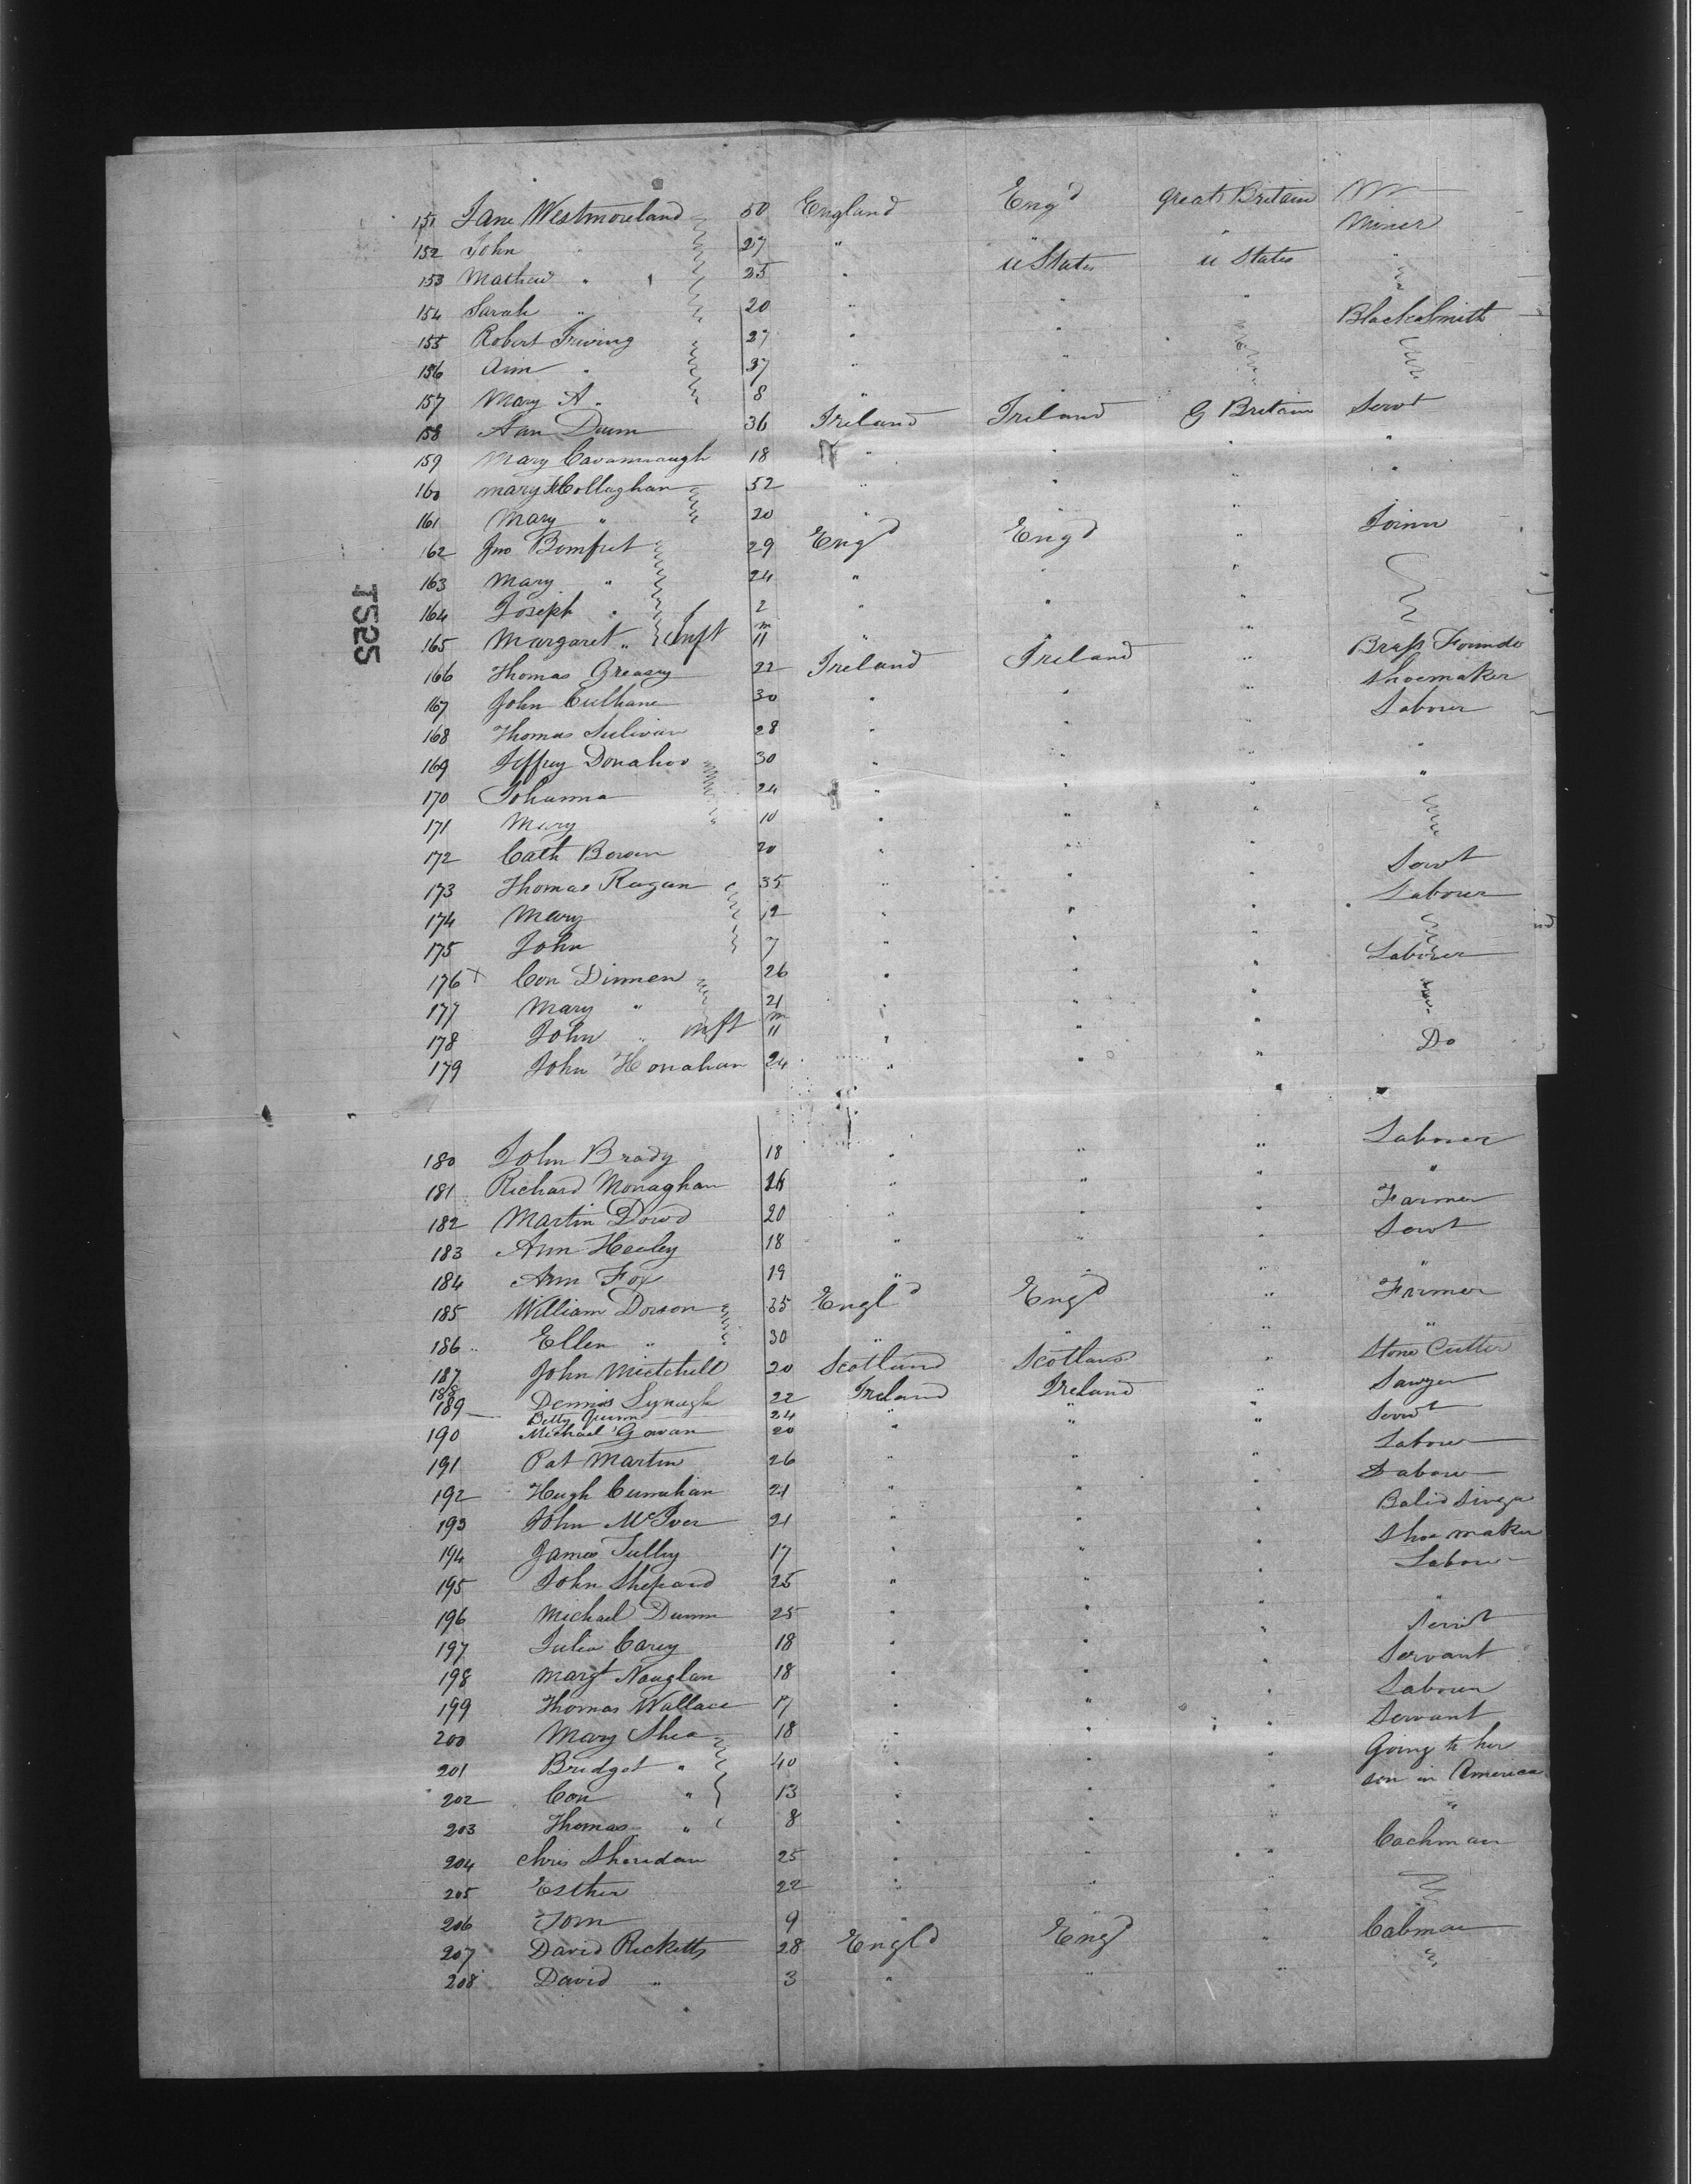 151 Jane Westmoreland 50 England Eng'd Great Britain
152 John " 27 " " " Miner
153 Mathew " 25 " U States U States "
154 Sarah " 20 " " "
155 Robert Irving 27 " " " BlackSmith
156 Ann " 37 " "
157 Mary A " 8 " "
158 Ann Dunn 36 Ireland Ireland G Britain Servt
159 Mary Cavannaugh 18 " " " "
160 Mary Collaghan 52 " " " "
161 Mary " 20 " "
162 Jno Bomfret 29 Engd Engd " Joiner
163 Mary " 24 " " "
164 Joseph " 2 " " "
165 Margaret " Inft m 11 " " "
166 Thomas Greasey 22 Ireland Ireland " Brass Founder
167 John Culhane 30 " " " Shoemaker
168 Thomas Sulivan 28 " " " Labourer
169 Jeffrey Donahoo 30 " " " "
170 Johanna 24 " " " "
171 Mary " 10 " " "
172 Cath Bowen 20 " " " Servt
173 Thomas Ragan 35 " " " Labourer
174 Mary 12 " " "
175 John 7 " " "
176 x Con Dinnen 26 " " " Labourer
177 Mary " 21 " " "
178 John " inft m 11 " " "
179 John Honahan 24 " " " Do
180 John Brady 18 " " " Labourer
181 Richard Monaghan 26 " " " "
182 Martin Dowd 20 " " " Farmer
183 Ann Healey 18 " " " Servt
184 Ann Fox 19 " " " "
185 William Dowson 35 Engld Engd " Farmer
186 Ellen " 30 " " " "
187 John Mietchell 20 Scotland Scotland " Stone Cutter
188 Dennis Lynagh 22 Ireland Ireland " Sawyer
189 Betty Quinn 24 " " " Servt
190 Michael Gavan 20 " Labour
191 Pat Martin 26 " " " Labour
192 Hugh Curnahan 21 " " "
193 John McIver 21 " " "
194 James Tulley 17 " " " Shoe maker
195 John Shepard 25 " " " Labour
196 Michael Dunn 25 " " " "
197 Julia Carey 18 " " " Servt
198 Margt Nauglan 18 " " " Servant
199 Thomas Wallace 17 " " " Labourer
200 Mary Shea 18 " " " Servant
201 Bridget " 40 " " " Going to her
202 Con " 13 " " " son in America
203 Thomas " 8 " " " "
204 Chris Sheridan 25 " " " Cochman
205 Esther 22 " " "
206 Tom 9 " " "
207 David Ricketts 28 Engld Engd " Cabman
208 David " 3 " " "
TS25